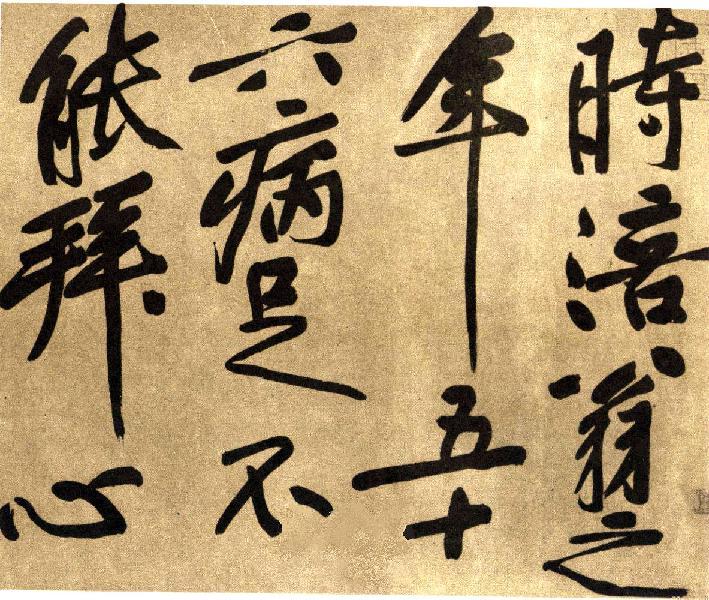 時涪翁之
年五十
六病足不
能拜心